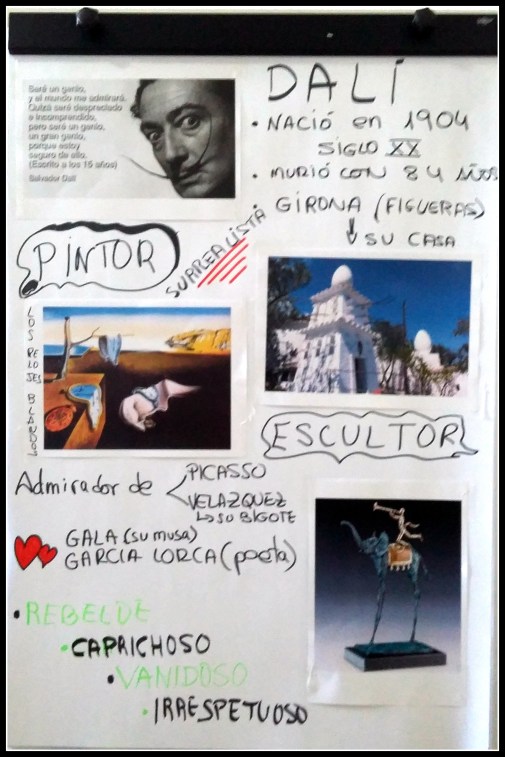 Será un genio,
y el mundo me admirará.
Quizá seré despreciado
e incomprendido,
pero seré un genio,
un gran genio,
porque estoy
seguro de ello.
(Escrito a los 15 años)
Salvador Dalí
DALÍ
• NACIÓ en 1904
SIGLO XX
• MURIÓ CON 84 AÑOS
• GIRONA (FIGUERAS)
SU CASA
PINTOR
SURREALISTA
LOS RELOJES BLANDOS
ESCULTOR
Admirador de
PICASSO
VELAZQUEZ
SU BIGOTE
GALA (su musa)
GARCIA LORCA (poeta)
• REBELDE
• CAPRICHOSO
• VANIDOSO
• IRRESPETUOSO